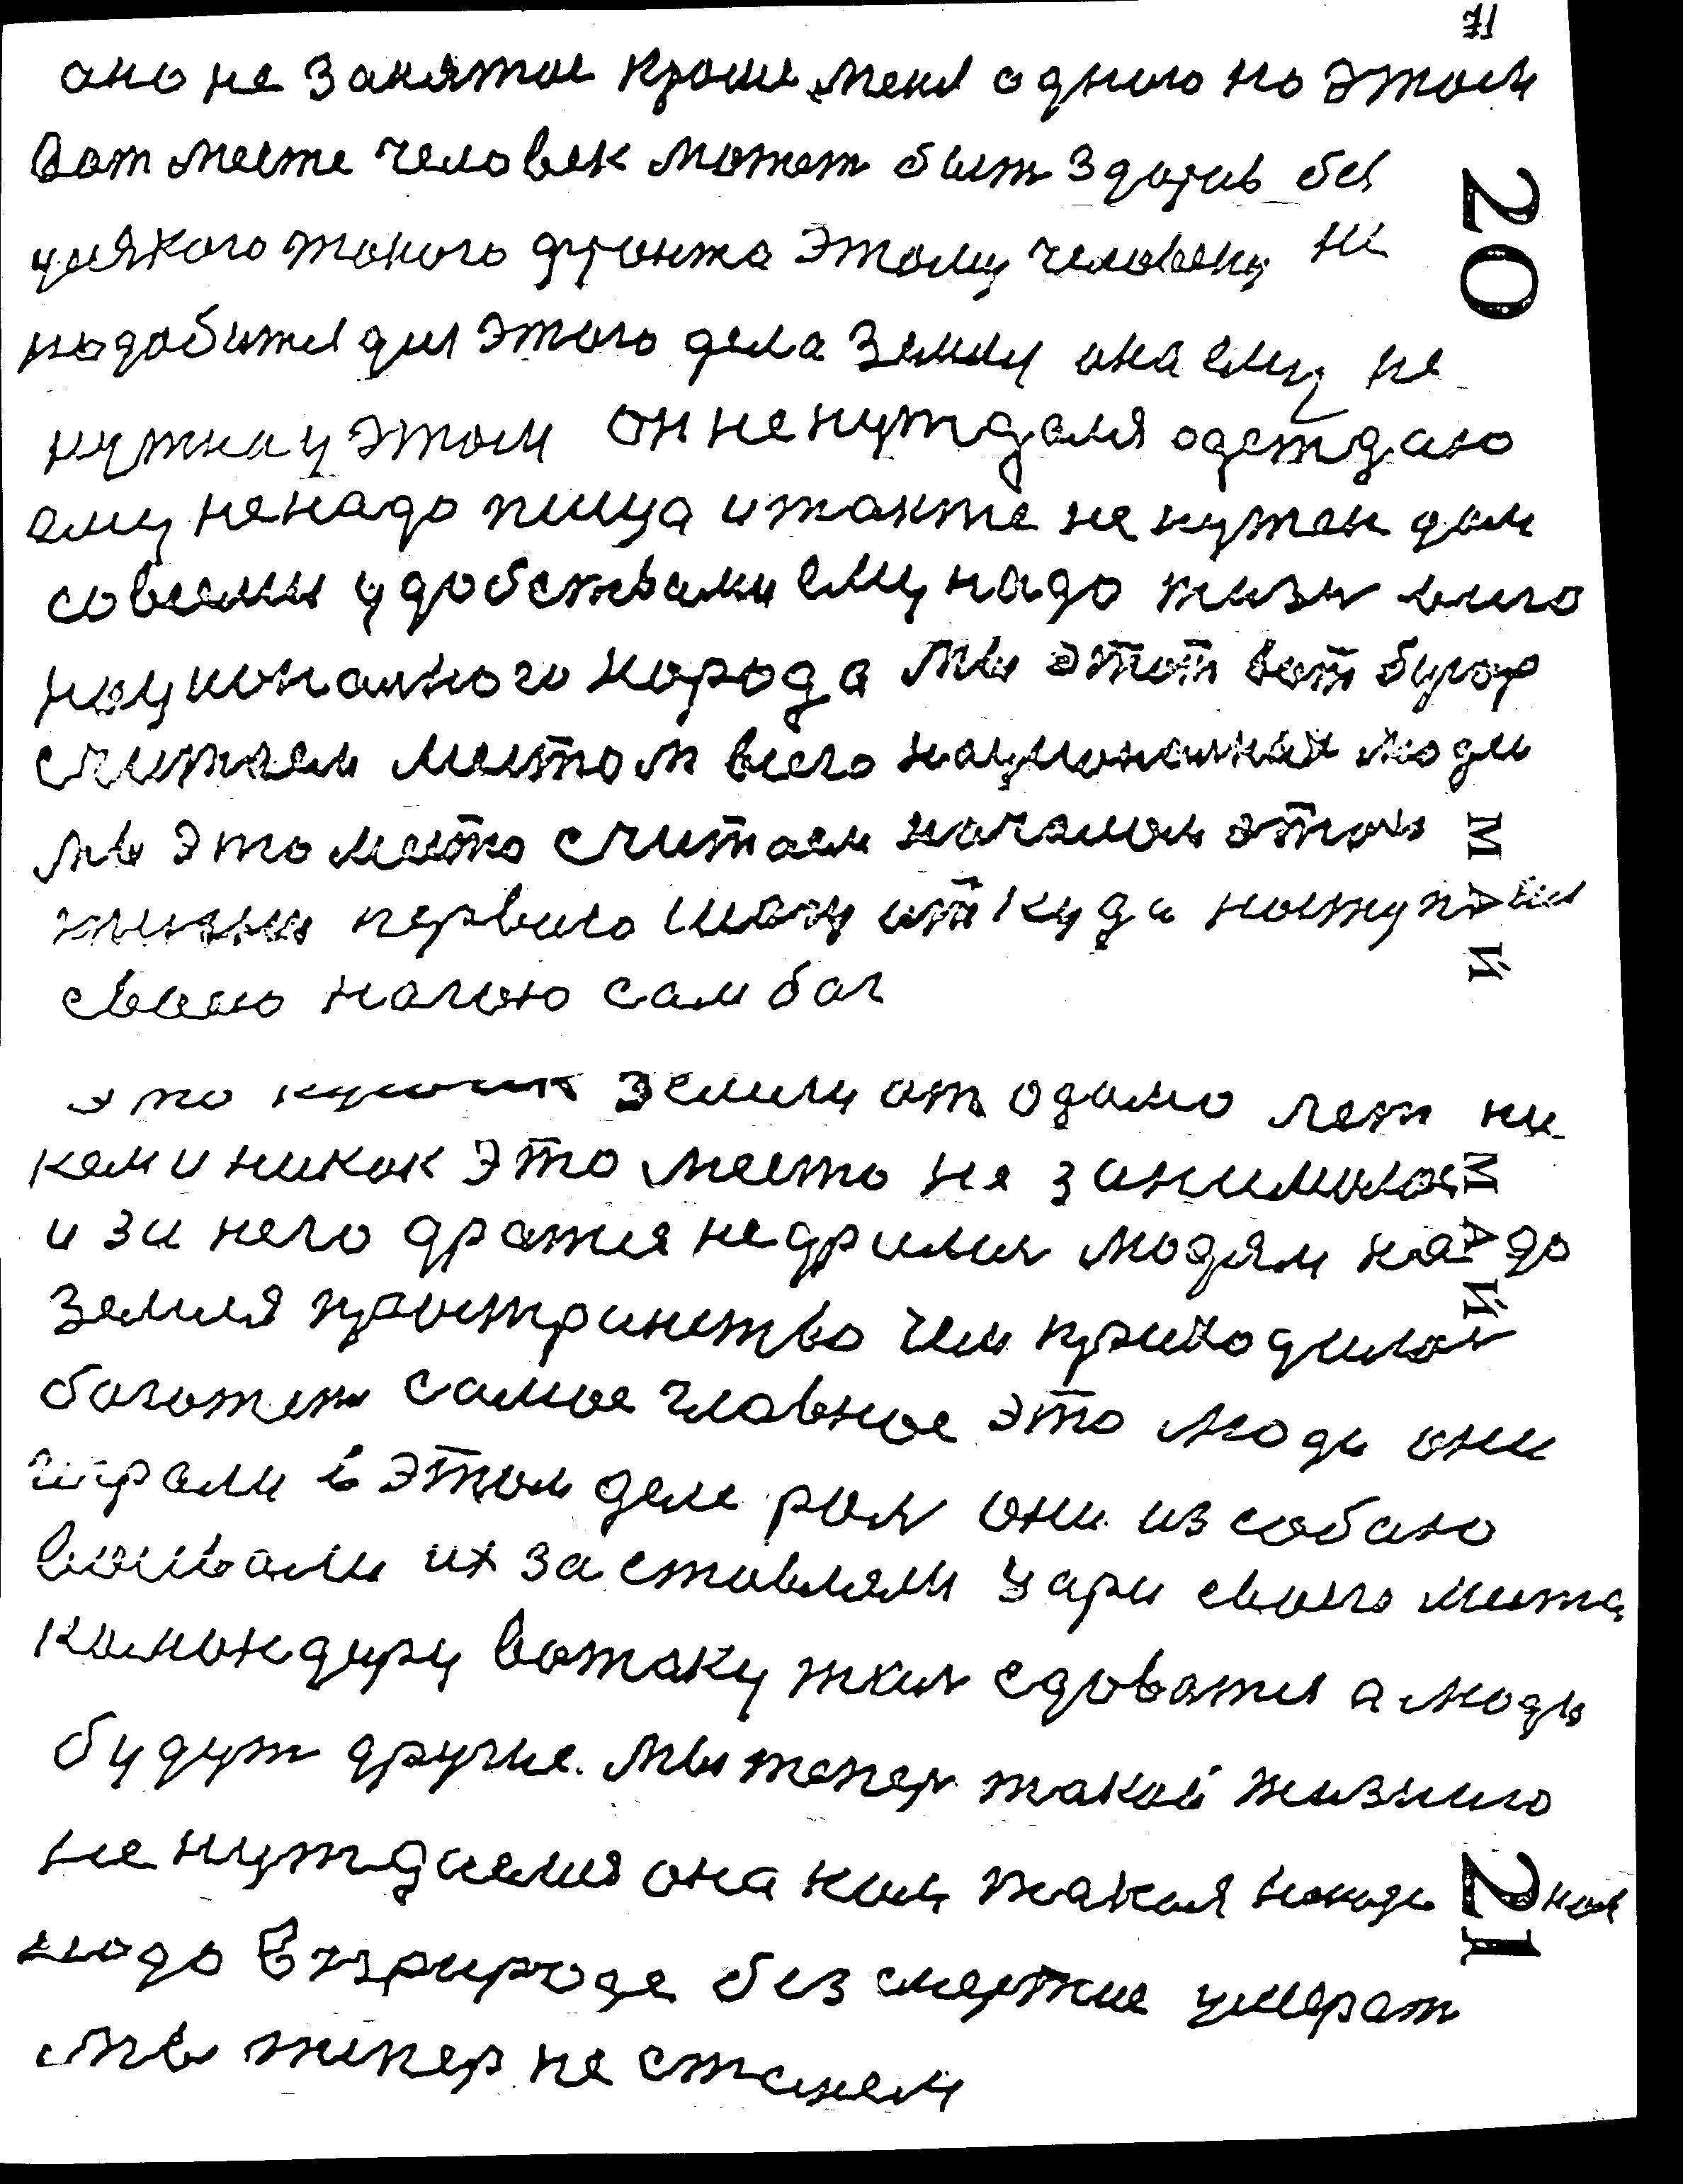 71
оно не занятое кроме меня одного но этом
вот месте человек может быть
усякого токого фронта этому человеку не
надобится для этого дела землу она ему не
нужна у этом он не нуждался одеждаю
ему ненадо пища и также не нужен дом
совсеми удобствами ему надо жизн
национального народа мы этот вот бугор
считаем местом всего националная люди
мы это место считаем началом этой
жизни первого шагу откуда
своею нагою сам бог
20
МАЙ
это кусочик земелу от одамо лет ни
кем и никак это место не занималос
и за него дратся людям надо
земля пространство чем приходилос
богатет самое главное это люди они
играли в этом деле рол они из собою
воивали их заставляли цари своего места
командиру вотаку жил а люди
будут другие. мы тепер такой жизнию
не нуждаемся она нам такая
надо в природе без смертие умерат
мы тепер не станем
МАЙ
21